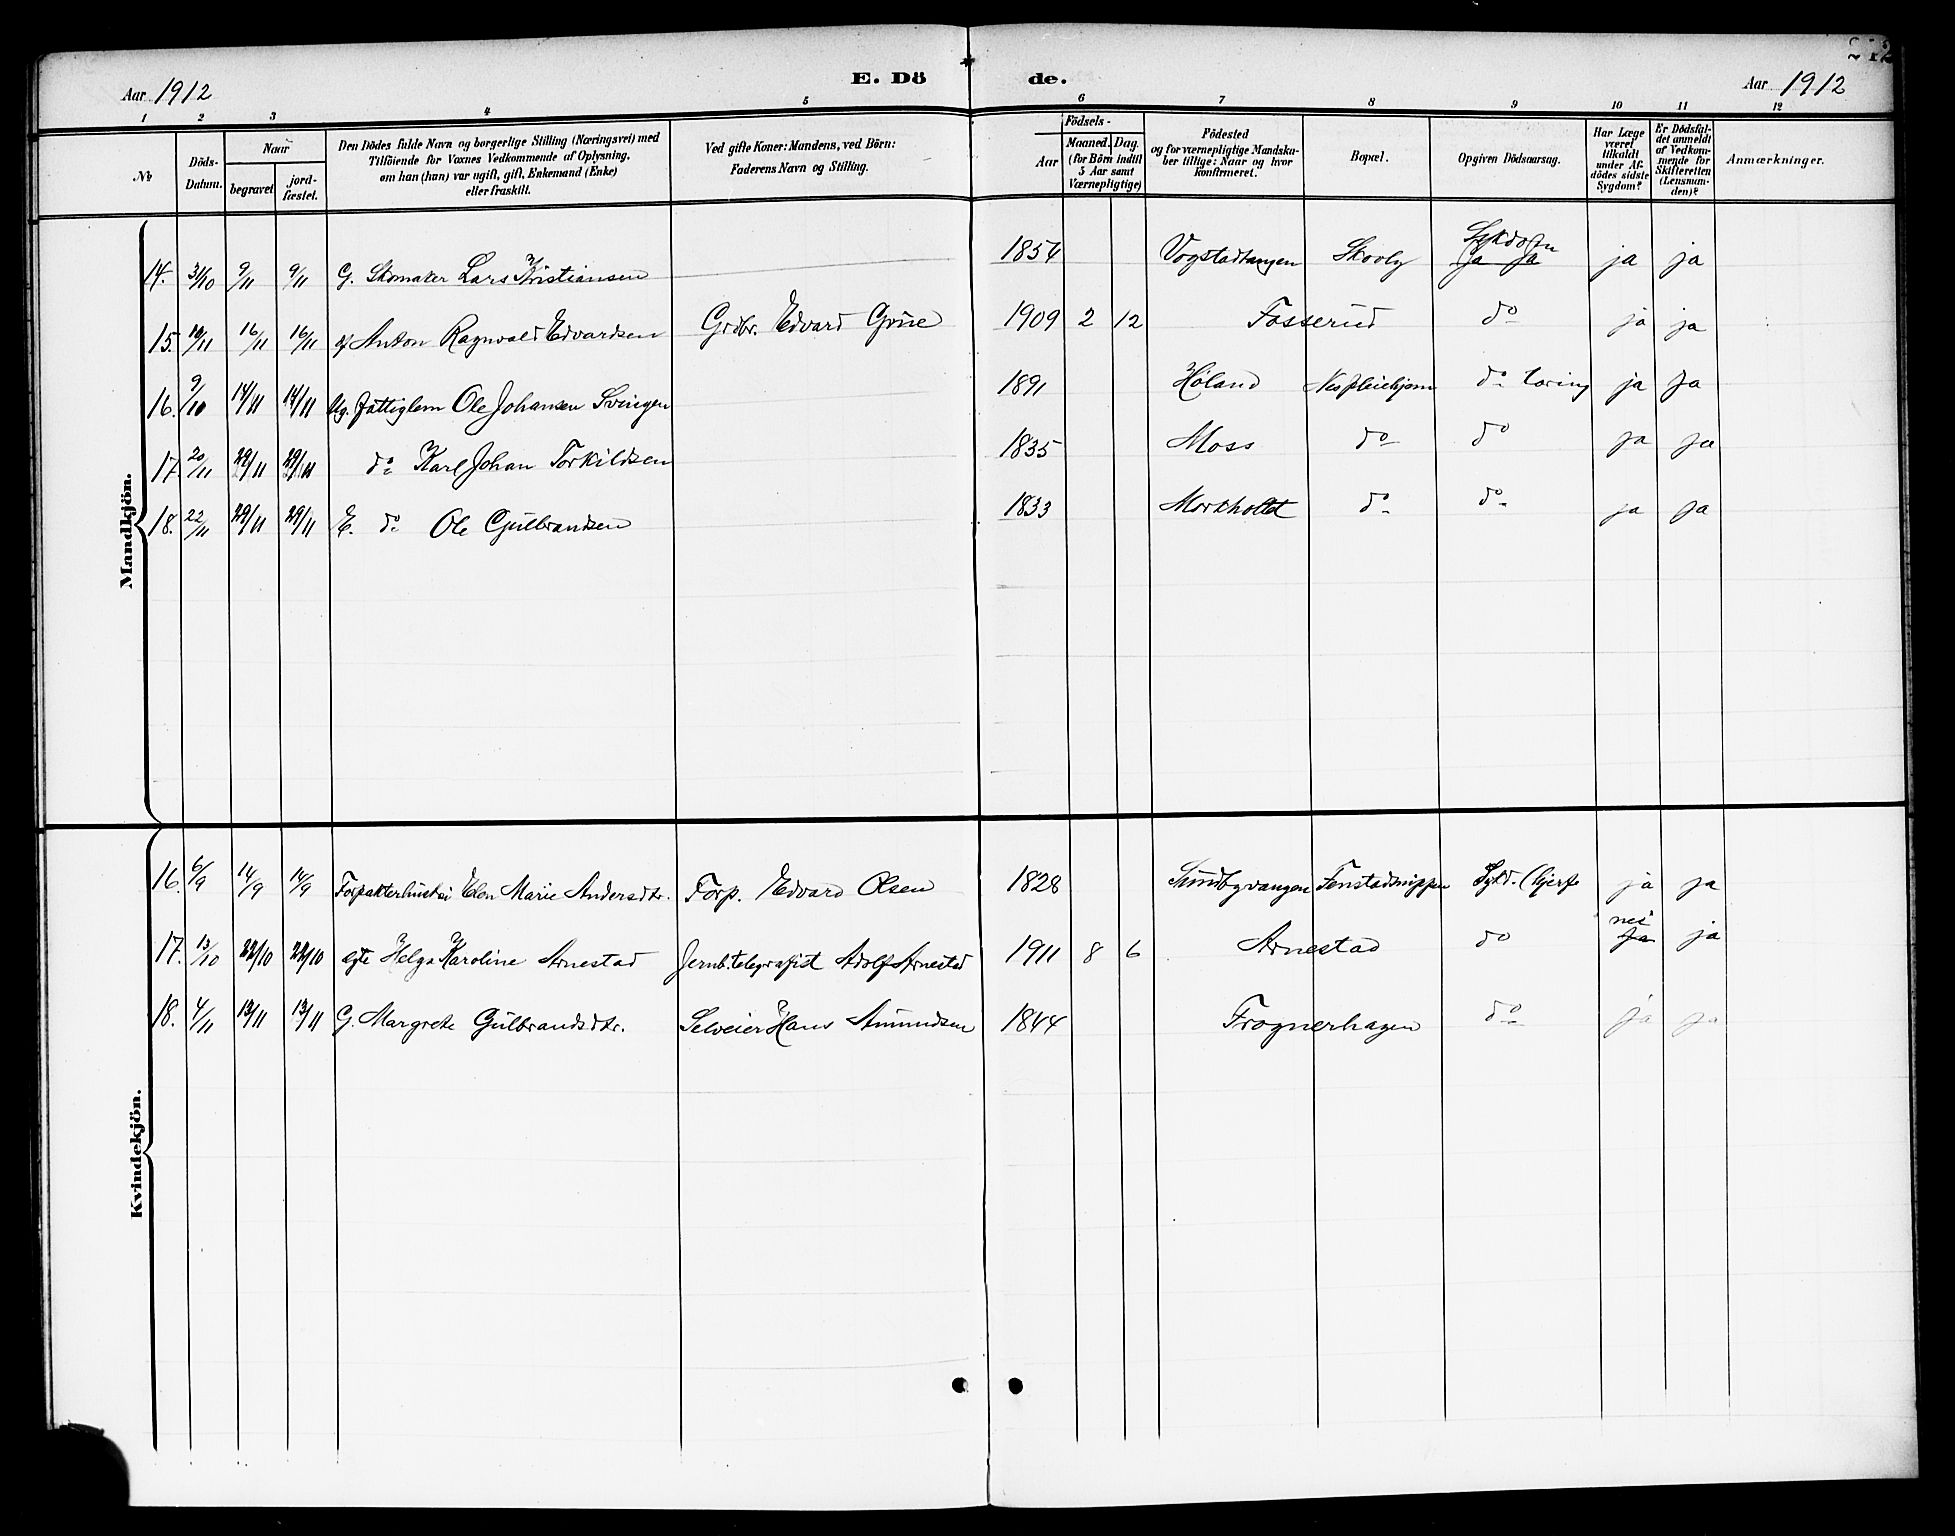 Aar 1912 E. Dö de. Aar 1912
1 2 3 4 5 6 7 8 9 10 11 12
No
Döds-Datum.
Naar
begravet
jord-fæstet.
Den Dödes fulde Navn og borgerlige Stilling (Næringsvei) med
Tilföiende for Voxnes Vedkommende af Oplysning,
om han (hun) var ugift, gift, Enkemand (Enke)
eller fraskilt.
Ved gifte Koner: Mandens, ved Börn:
Faderens Navn og Stilling.
Födsels-
Aar
Maaned. Dag.
(for Börn indtil
5 Aar samt
Værnepligtige)
Födested
og for værnepligtige Mandska-
ber tillige: Naar og hvor
konfirmeret.
Bopæl.
Opgiven Dödsaarsag.
Har Læge
været
tilkaldt
under Af-
dödes sidste
Sygdom?
Er Dödsfal-
det anmeldt
af Vedkom-
mende for
Skifteretten
(Lensman-
den)?
Anmærkninger.
Mandkjön.
14. 31/10 9/11 9/11 G. Skomaker Lars Kristiansen 1854 Vogstadtangen Skovly Sykdom ja ja ja ja
15. 10/11 16/11 16/11 Anton Ragnvald Edvardsen Grdbr. Edvard Grüe 1909 2 12 Fosserud do ja ja
16. 9/10 14/11 14/11 Ug. fattiglem Ole Johansen Svingen 1891 Høland Nes pleiehjem do tæring ja ja
17. 20/11 29/11 29/11 do Karl Johan Torkildsen 1835 Moss do do ja ja
18. 22/11 29/11 29/11 E. do Ole Gulbrandsen 1833 Morkholtet do do ja ja
Kvindekjön.
16. 6/9 14/9 14/9 Forpakterhustru Elen Marie Andersdtr. Forp. Edvard Olsen 1828 Sundbyvangen Fenstadnippen Sykd. (hjerte ja ja
17. 13/10 22/10 22/10 egte Helga Karoline Arnestad Jernb.telegrafist Adolf Arnestad 1911 8 6 Arnestad do nei ja ja
18. 4/11 13/11 13/11 G. Margrete Gulbrandsdtr. Selveier Hans Amundsen 1844 Frognerhagen do ja ja